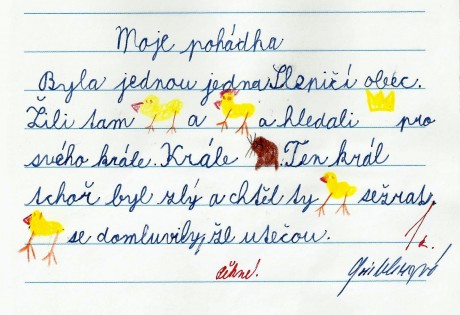 Moje pohádka
Byla jednou jedna Slepičí obec.
Žili tam a a hledali pro
svého krále. Krále . Ten král
tchoř byl zlý a chtěl ty sežrat,
se domluvily, že utečou.
1
pěkné.